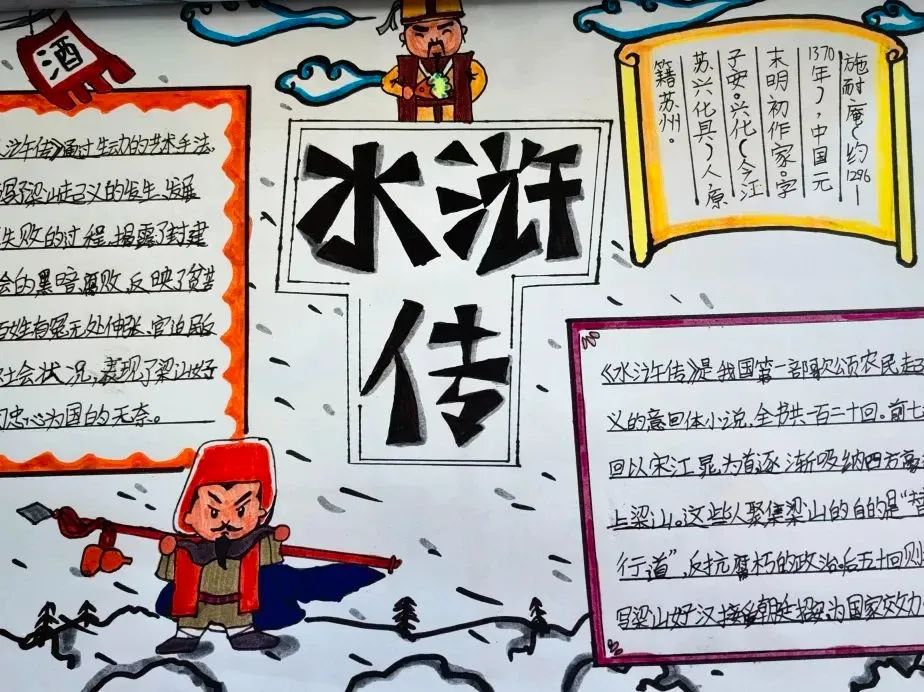 酒
水浒
传
浒传》通过生动的艺术手法,
了梁山起义的发生、发展
失败的过程,揭露了封建
会的黑暗腐败,反映了贫苦
百姓有冤无处伸张、官迫民反
社会状况,表现了梁山好
们忠心为国的无奈。
施耐庵(约1296—
1370年),中国元
末明初作家。字
子安。兴化(今江
苏兴化具)人原
籍苏州。
《水浒传》是我国第一部歌颂农民起
义的章回体小说,全书共一百二十回。前七
回以宋江晁为首逐渐吸纳四方豪
上梁山。这些人聚集梁山的目的是“替
行道”,反抗腐朽的政治。后五十回则
写梁山好汉接受朝廷招为国家效力